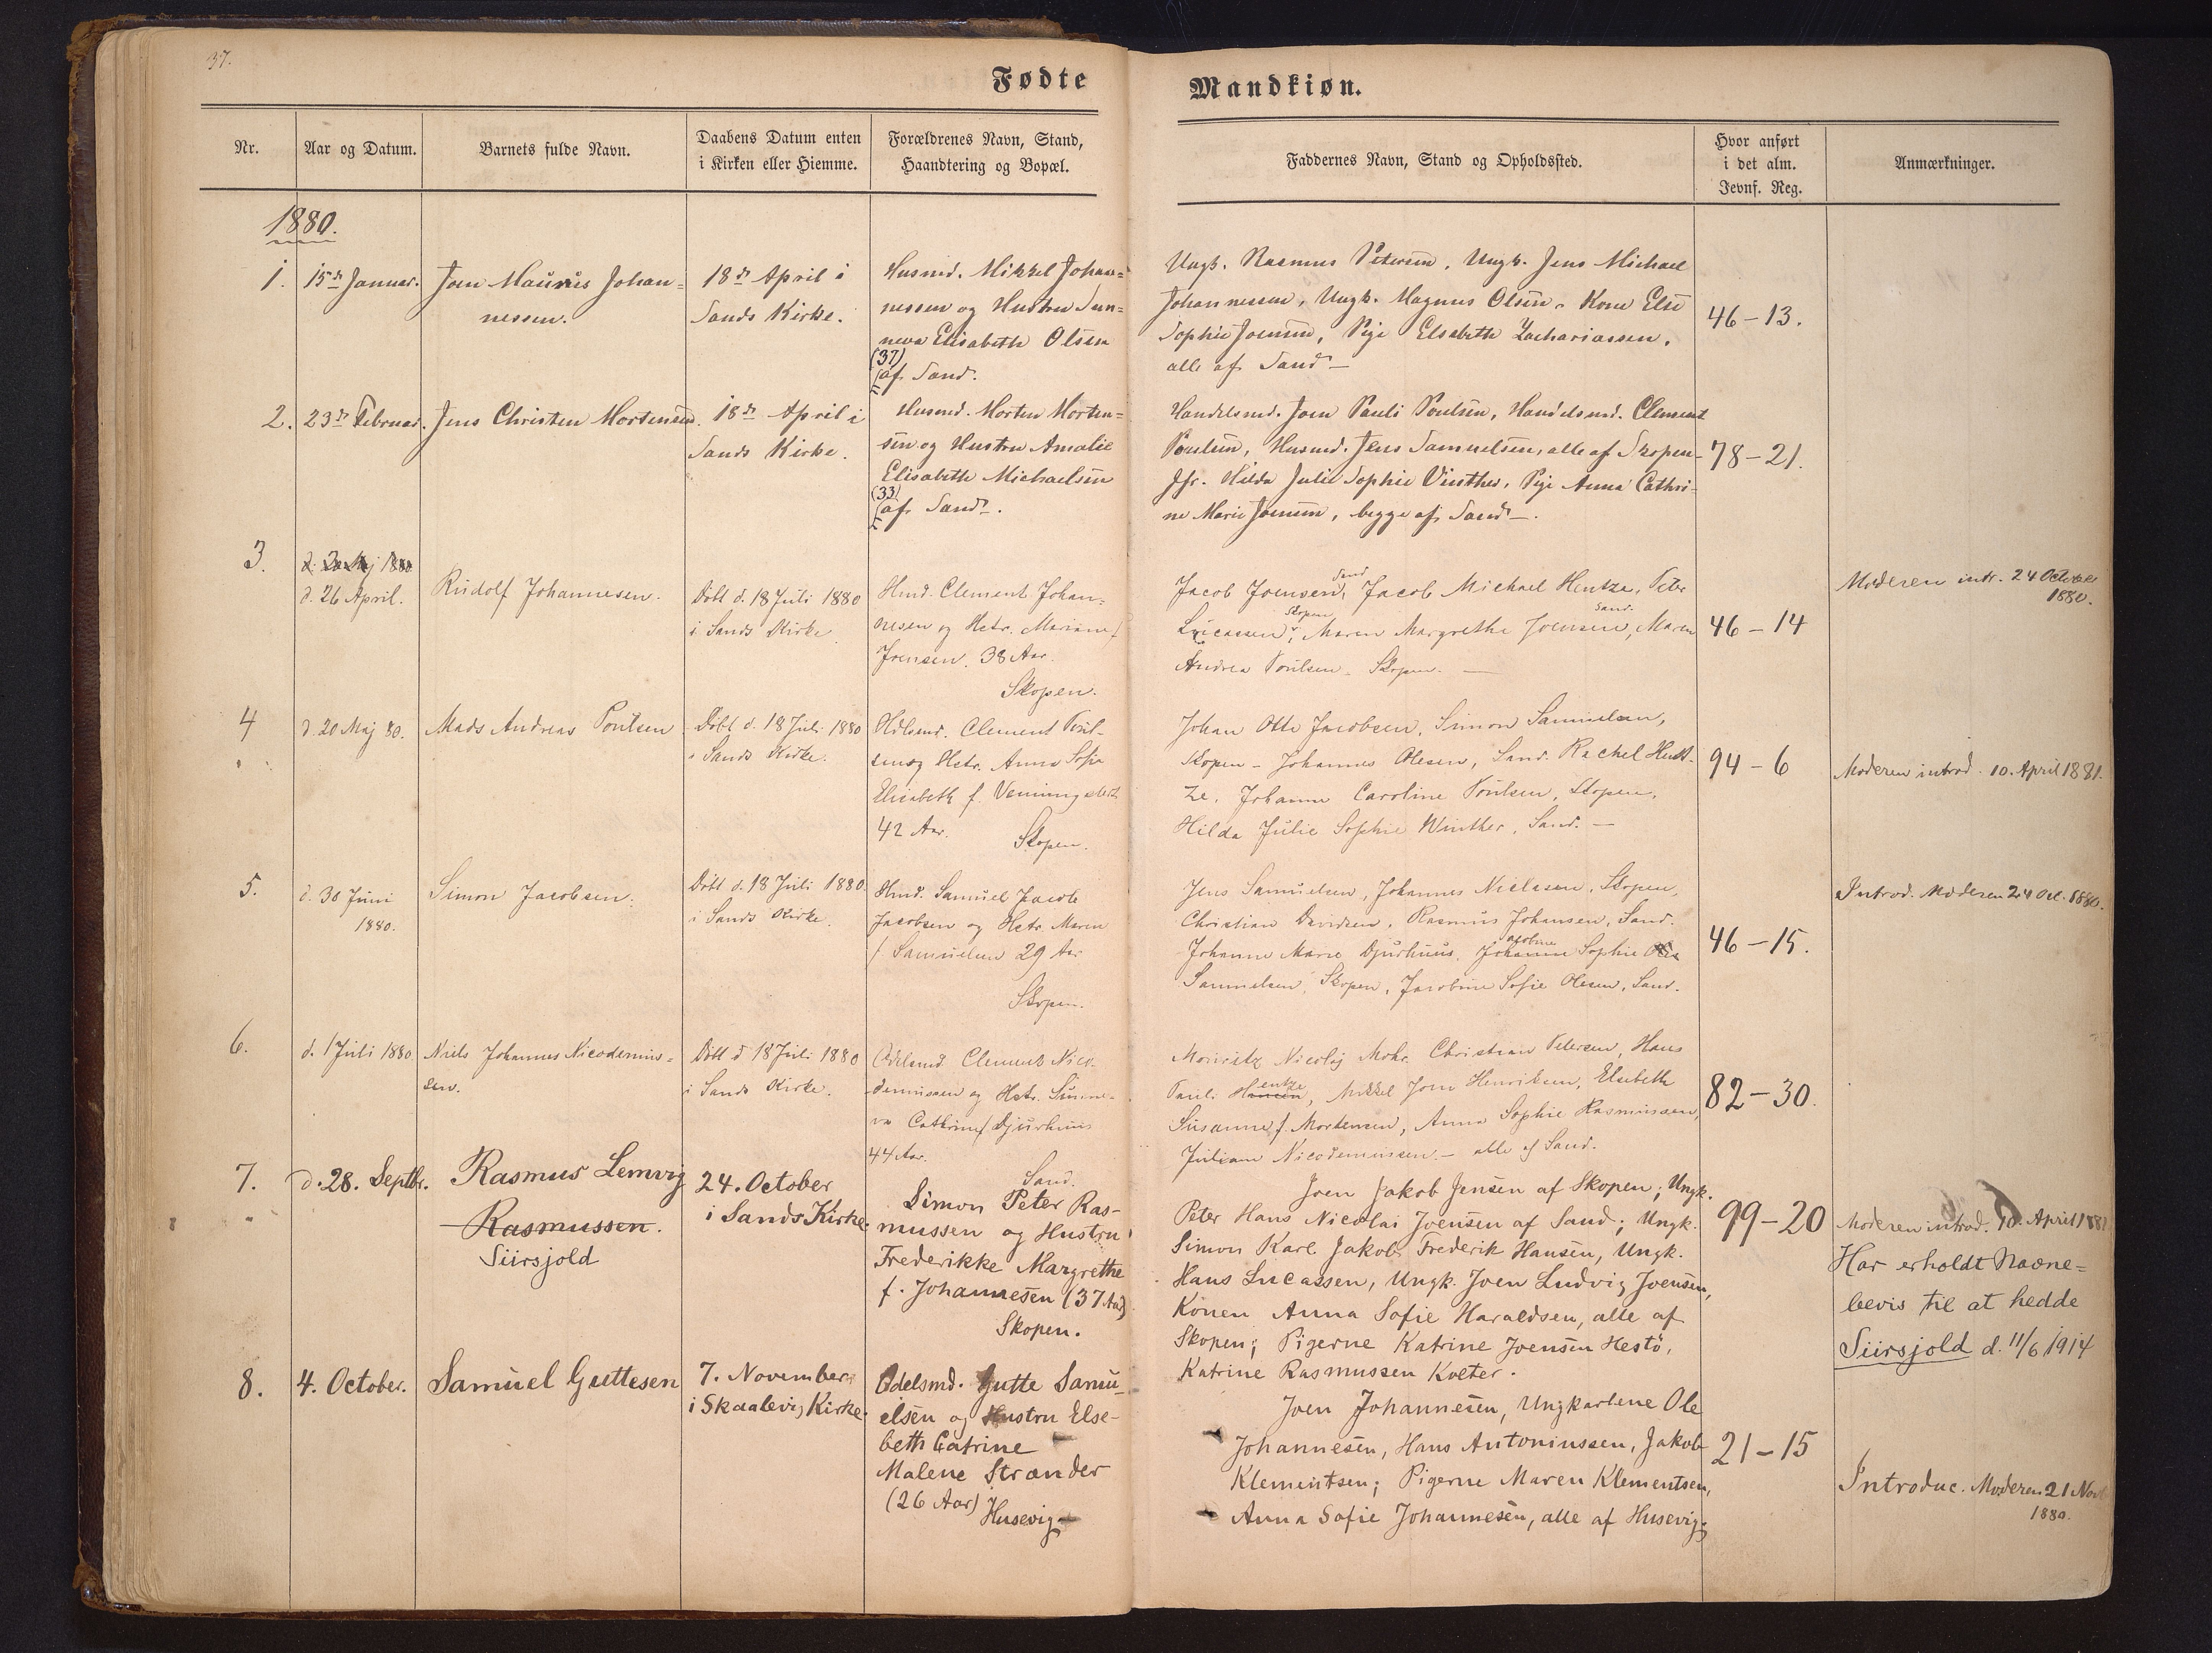 37.
Fødte
Mandkiøn.
Nr.
Aar og Datum.
Barnets fulde Navn.
Daabens Datum enten
i Kirken eller Hiemme.
Forældrenes Navn, Stand,
Haandtering og Bopæl.
Faddernes Navn, Stand og Opholdssted.
Hvor anført
i det alm.
Jevnf. Reg.
Anmærkninger.
1880.
1.
15de Januar.
Joen Maurus Johan=
nessen.
18de April i
Sands Kirke.
Husmd. Mikkel Johan=
nessen og Hustru Sun=
neva Elisabeth Olsen
(37)
af Sand.
Ungk. Rasmus Petersen, Ungk. Jens Michael
Johannessen, Ungk. Magnus Olsen, Kone Else
Sophie Joensen, Pige Elsebeth Zachariassen,
alle af Sand —
46 – 13.
2.
23de Februar.
Jens Christen Mortensen.
18de April i
Sands Kirke.
Husmd. Morten Morten=
sen og Hustru Amalie
Elisabeth Michaelsen
(33)
af Sand.
Handelsmd. Joen Pauli Poulsen, Handelsmd. Clement
Poulsen, Husmd. Jens Samuelsen, alle af Skopen
Jfr. Hilda Julie Sophie Vinther, Pige Anna Cathri=
ne Marie Joensen, begge af Sand —.
78 – 21.
3.
d. 26 April.
Rudolf Johannesen.
Døbt d. 18 Juli 1880
i Sands Kirke.
Hmd. Clement Johan=
nesen og Hstr. Mariane f
Joensen. 38 Aar.
Skopen.
Jacob Joensen, Sand, Jacob Michael Hentze, Peter
Lucassen, Skopen, Maren Margrethe Joensen, Sand. Maren
Andrea Poulsen. Skopen. —
46 – 14
Moderen intr. 24 October
1880.
4
d. 20 Maj 80.
Mads Andreas Poulsen
Døbt d. 18 Juli 1880
i Sands Kirke.
Hdlsmd. Clement Poul-
sen og Hstr. Anna Sofie
Elisabeth f.
42 Aar.
Skopen.
Johan Otto Jacobsen, Simon Samuelsen,
Skopen – Johannes Olesen, Sand. Rachel Hent-
ze, Johanne Caroline Poulsen, Skopen,
Hilda Julie Sophie Winther, Sand. —
94 – 6
Moderen introd. 10. April 1881.
5.
d. 30 Juni
1880.
Simon Jacobsen.
Døbt d. 18 Juli 1880.
i Sands Kirke.
Hmd. Samuel Jacob
Jacobsen og Hstr. Maren
f. Samuelsen 29 Aar
Skopen.
Jens Samuelsen, Johannes Nielssen, Skopen,
Christian Davidsen, Rasmus Johansen, Sand.
Johanne Marie Djurhuus, Jacobine Sophie
Samuelsen, Skopen, Jacobine Sofie Olesen, Sand.
46 – 15.
Introd. Moderen 24 Oct. 1880.
6.
d. 1 Juli 1880
Niels Johannes Nicodemus=
sen.
Døbt d 18 Juli 1880
i Sands Kirke.
Odelsmd. Clement Nico-
demussen og Hstr. Sunne-
va Cathrine f Djurhuus
44 Aar.
Sand.
Mouritz Nicolaj Mohr. Christian Petersen, Hans
Pauli Hentze, Mikkel Joen Henriksen, Elsebeth
Susanne f. Mortensen, Anna Sophie Rasmussen,
Juliane Nicodemussen. – alle af Sand.
82 – 30.
7.
d. 28. Septbr.
Rasmus Lemvig
Rasmussen.
Siirsjold
24. October
i Sands Kirke.
Simon Peter Ras-
mussen og Hustru
Frederikke Margrethe
f. Johannesen (37 Aar)
Skopen.
Joen Jakob Jensen af Skopen; Ungk.
Peter Hans Nicolai Joensen af Sand; Ungk.
Simon Karl Jakob Frederik Hansen, Ungk.
Hans Lucassen, Ungk. Joen Ludvig Joensen,
Konen Anna Sofie Haraldsen, alle af
Skopen; Pigerne Katrine Joensen Hestö,
Katrine Rasmussen Kvelter.
99 – 20
Moderen introd. 10. April 1881
Har erholdt Navne=
bevis til at hedde
Siirsjold d. 11/6 1914
8.
4. October.
Samuel Guttesen
7. November
i Skaalevig Kirke.
Odelsmd. Gutte Samu-
elsen og Hustru Else-
beth Catrine
Malene Strander
(26 Aar)
Husevig
Joen Johannesen, Ungkarlene Ole
Johannesen, Hans Antoniussen, Jakob
Klementsen; Pigerne Maren Klementsen,
Anna Sofie Johannesen, alle af Husevig.
21 – 15
Introduc. Moderen 21 Nov
1880.